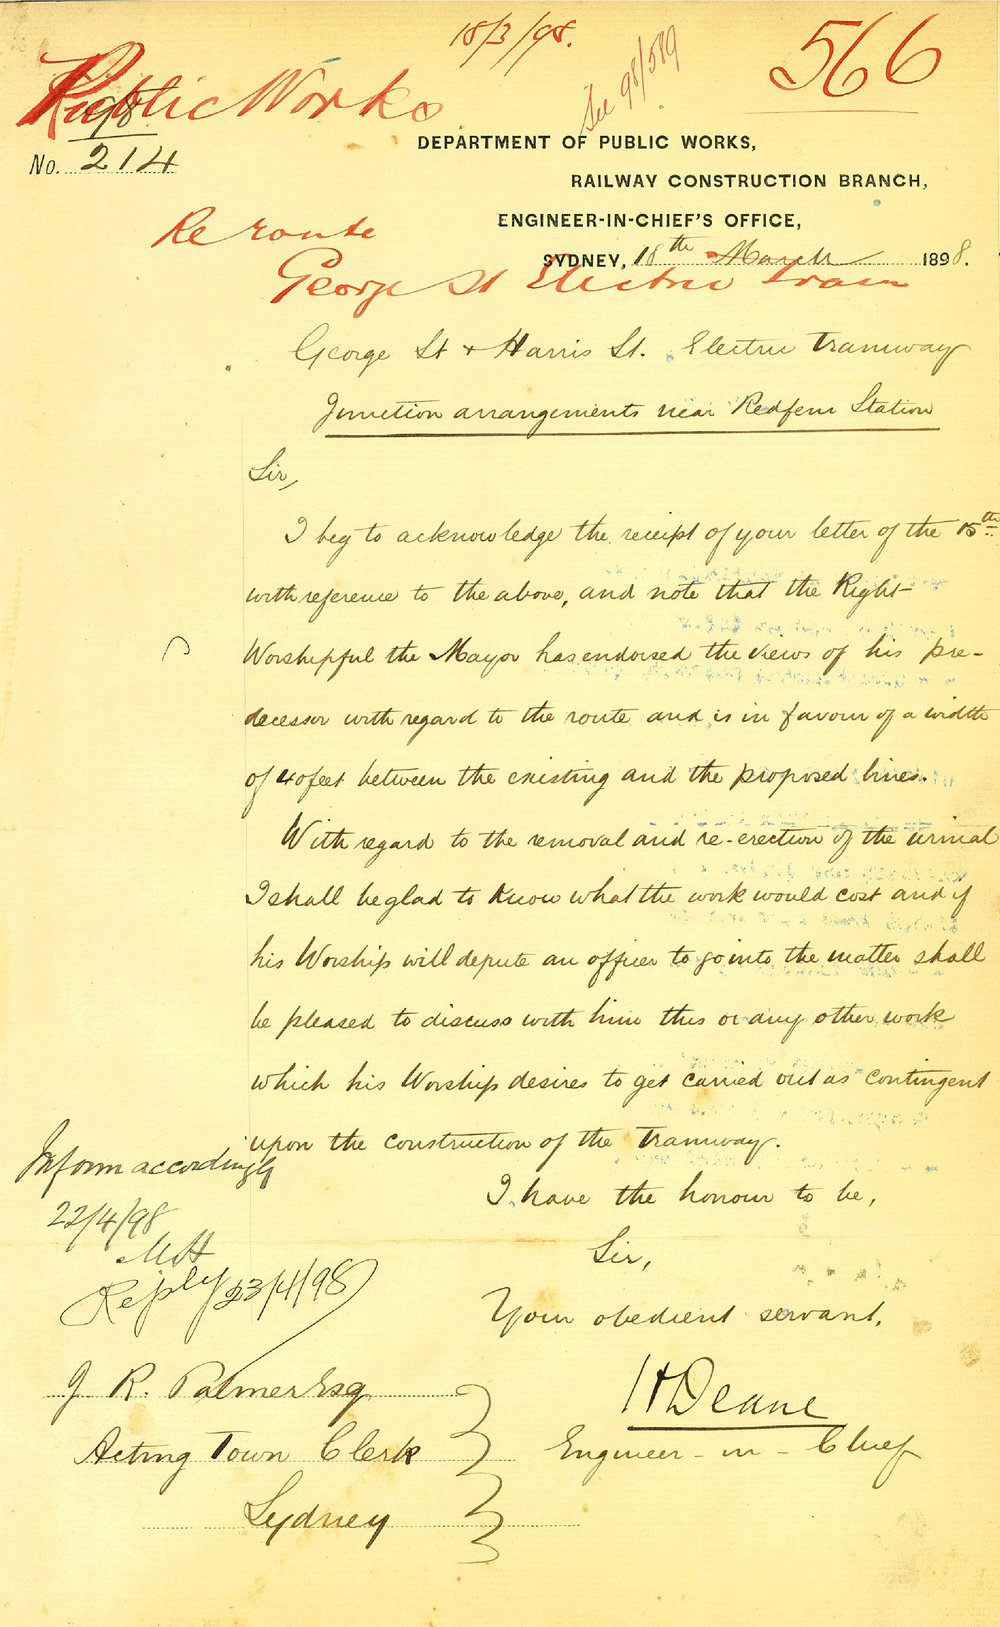 18/3/98.
566
See 98/589
Public Works
98
No. 214
DEPARTMENT OF PUBLIC WORKS,
RAILWAY CONSTRUCTION BRANCH,
ENGINEER-IN-CHIEF'S OFFICE,
SYDNEY, 18th March 1898.
Re route
George St Electric Tram
George St & Harris St. Electric Tramway
Junction arrangements near Redfern Station
Sir,
I beg to acknowledge the receipt of your letter of the 15th
with reference to the above, and note that the Right
Worshipful the Mayor has endorsed the views of his pre-
decessor with regard to the route and is in favour of a width
of 40 feet between the existing and the proposed lines.
With regard to the removal and re-erection of the urinal
I shall be glad to know what the work would cost and if
his Worship will depute an officer to go into the matter shall
be pleased to discuss with him this or any other work
which his Worship desires to get carried out as contingent
upon the construction of the Tramway.
I have the honour to be,
Sir,
Your obedient servant,
H Deane
Engineer-in-Chief
Inform accordingly
22/4/98
MH
Reply 23/4/98
J. R. Palmer Esq
Acting Town Clerk
Sydney